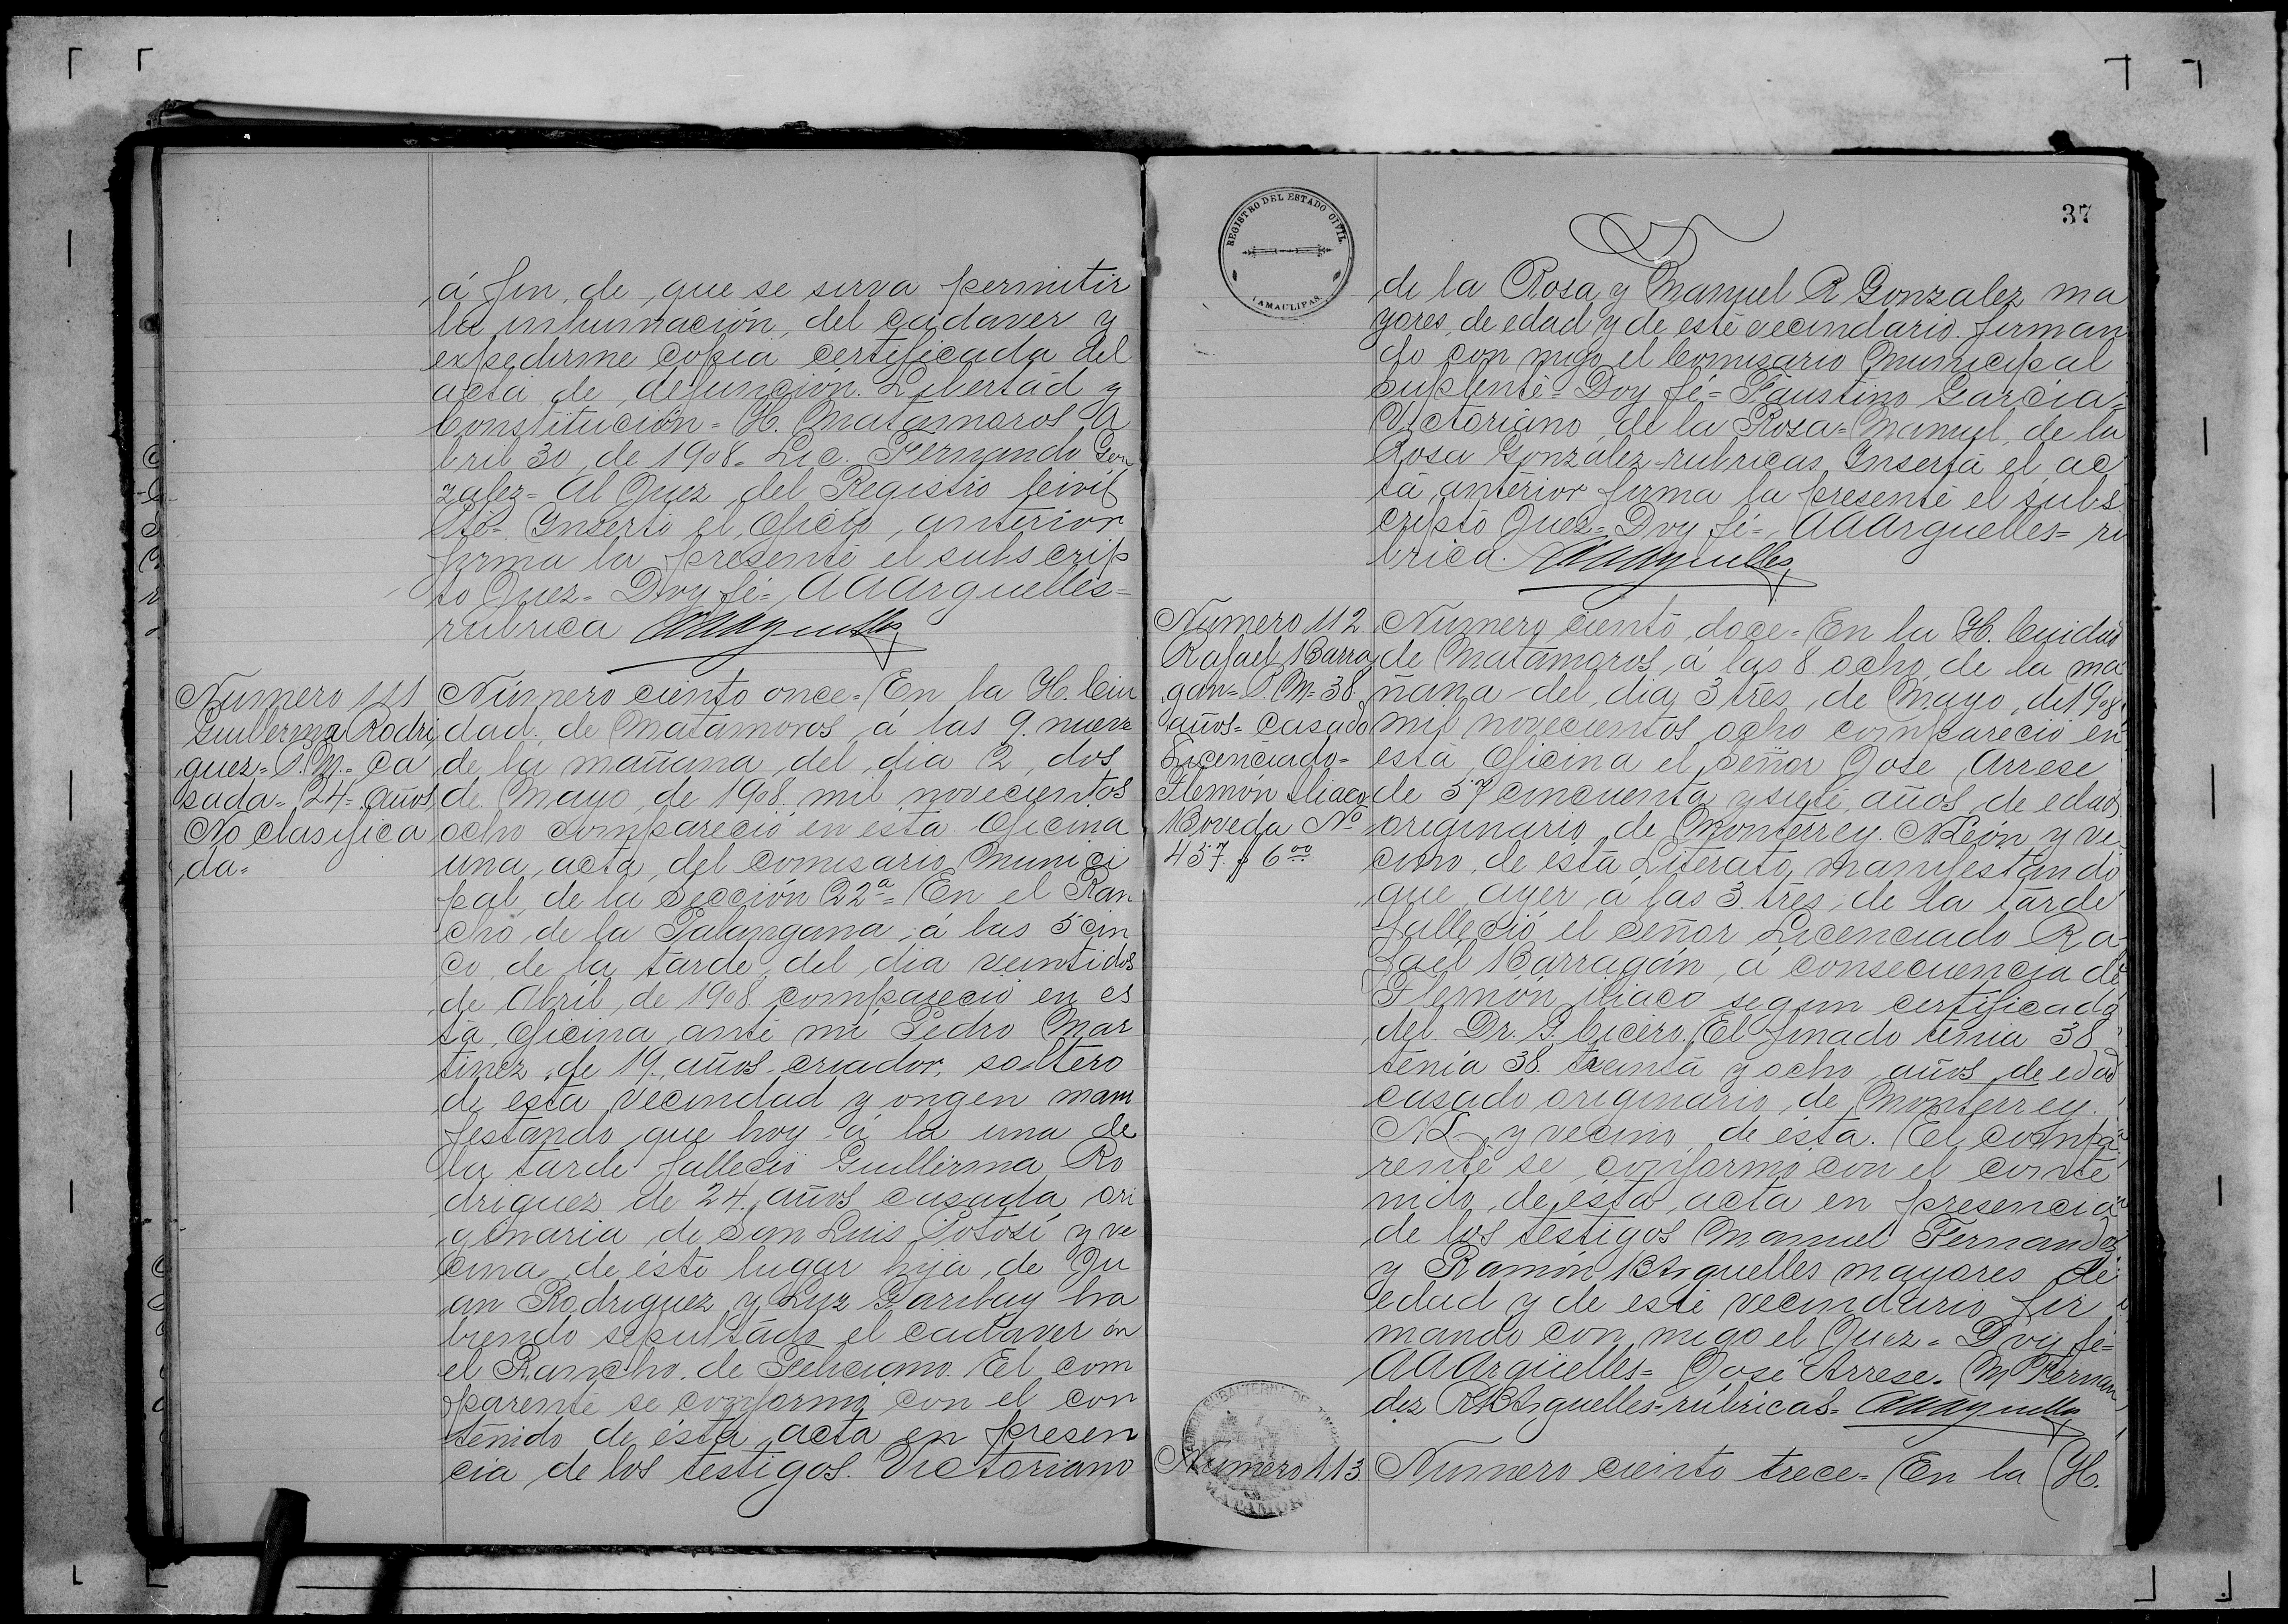 á fin de que se sirva permitir
la inhumación del cadaver y
expedirme copia certificada del
acta de defunción. Libertad y
Constitución= H. Matamoros A
bril 30 de 1908= Lic. Fernando Gon
zalez= Al Juez del Registro Civil
Pte= Inserto el Oficio anterior
firma la presente el subscrip
to Juez= Doy fé= AAArguelles=
rubrica AAArguelles
Numero 111
Guillerma Rodri
guez= P. M.= Ca
sada= 24= años
No clasifica
da=
Número ciento once= En la H. Ciu
dad de Matamoros á las 9. nueve
de la mañana del dia 2, dos
de Mayo de 1908 mil novecientos
ocho compareció en esta Oficina
una acta del comisario Munici
pal de la Sección 22ª= En el Ran
cho de la Palangana á las 5 cin
co de la tarde del dia veintidos
de Abril de 1908 compareció en es
ta Oficina ante mi Pedro Mar
tinez de 19. años criador, soltero
de esta vecindad y origen mani
festando que hoy á la una de
la tarde falleció Guillerma Ro
driguez de 24. años casada ori
ginaria de San Luis Potosí y ve
cina de éste lugar hija de Ju
an Rodriguez y Luz Garibay ha
biendo sepultado el cadaver en
el Rancho de Feliciano. El com
parente se conformo con el con
tenido de ésta acta en presen
cia de los testigos. Victoriano
REGISTRO DEL ESTADO CIVIL
TAMAULIPAS
37
de la Rosa y Manuel R Gonzalez ma
yores de edad y de este vecindario firman
do con migo el Comisario Municipal
suplente= Doy fé= Faustino Garcia=
Victoriano de la Rosa= Manuel de la
Rosa Gonzalez rubricas Inserta el ac
ta anterior firma la presente el subs
cripto Juez= Doy fé= AAArguelles= ru
brica. AAArguelles
Numero 112
Rafael Barra
gan= P. M= 38
años= casado
Licenciado=
Flemón iliaco
Boveda Nº
457. $ 6ºº
Numero ciento doce= En la H. Cuidad
de Matamoros á las 8. ocho de la ma
ñana del dia 3 tres de Mayo de 1908
mil novecientos ocho compareció en
esta Oficina el Señor Jose Arrese
de 57 cincuenta y siete años de edad
originario de Monterrey. N León y ve
cino de ésta Literato manifestando
que ayer á las 3. tres de la tarde
falleció el Señor Licenciado Ra
fael Barragán, á consecuencia de
Flemón iliaco segun certificado
del Dr. G. Cicero. El finado tenia 38
tenía 38. treinta y ocho años de edad
casado originario de Monterrey.
N L y vecino de ésta. El compa
rente se conformo con el conte
nido de ésta acta en presencia
de los testigos Manuel Fernandez
y Ramón B Arguelles mayores de
edad y de este vecindario fir
mando con migo el Juez= Doy fé=
AAArgüelles= José Arrese. M Fernan
dez RBArguelles= rúbricas= AAArguelles
Numero 113
MATAMOROS
Numero ciento trece= En la H.